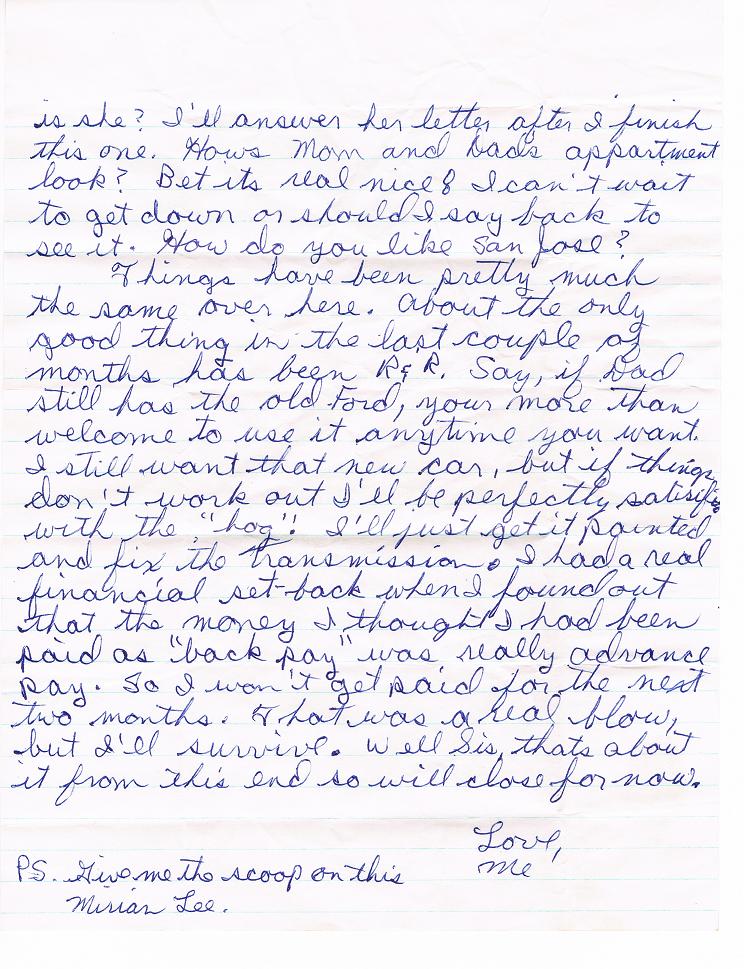 is she? I'll answer her letter after I finish
this one. Hows Mom and Dads appartment
look? Bet its real nice & I can't wait
to get down or should I say back to
see it. How do you like San Jose?
Things have been pretty much
the same over here. About the only
good thing in the last couple of
months has been R&R. Say, if Dad
still has the old Ford, your more than
welcome to use it anytime you want.
I still want that new car, but if things
don't work out I'll be perfectly
with the "hog"! I'll just get it painted
and fix the transmission. I had a real
financial set-back when I found out
that the money I thought I had been
paid as "back pay" was really advance
pay. So I won't get paid for the next
two months. That was a real blow,
but I'll survive. Well Sis, thats about
it from this end so will close for now.
Love,
Me
PS. Give me the scoop on this
Mirian Lee.